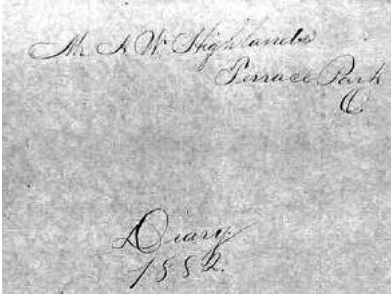 Mr A W Highlands
Terrace Park
O.
Diary
1882.